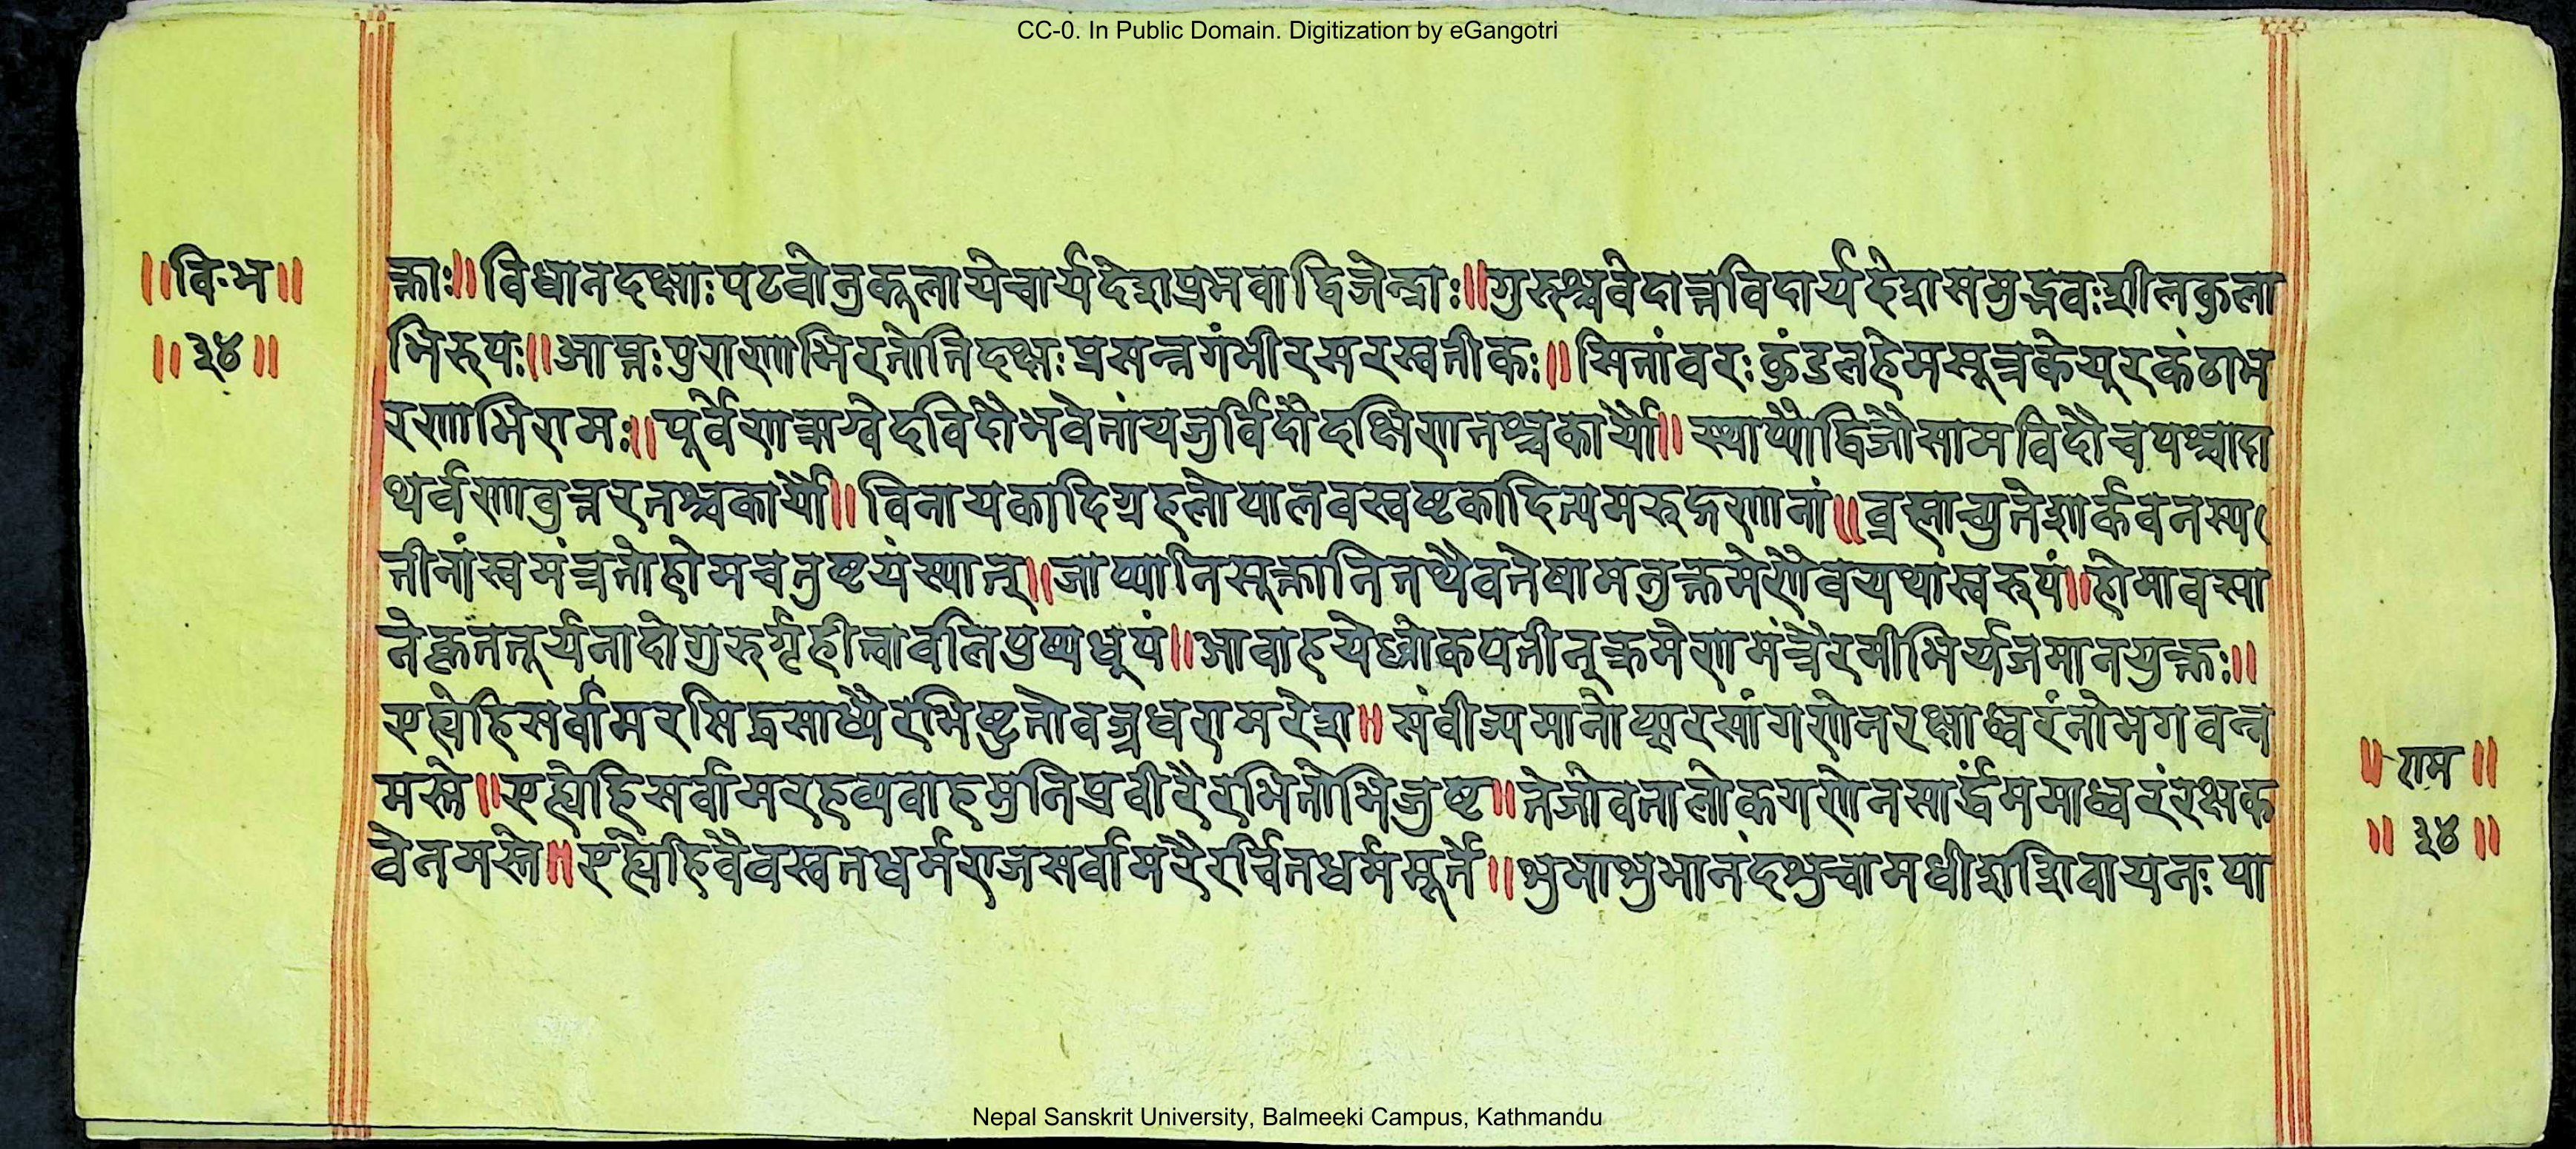 CC-0. In Public Domain. Digitization by eGangotri
॥विःभ॥
॥३४॥
क्ताः॥विधानदक्षाःपटवोनुकूलायेचार्यदेशप्रभवाद्विजेन्द्राः॥गुरुश्चवेदान्तविदार्यदेशसमुद्भवःशीलकुला
भिरुपः॥आप्तःपुराणाभिरतोतिदक्षःप्रसन्नगंभीरसरस्वतीकः॥सितांवरःकुंडलहेमसूत्रकेयूरकंठाभ
रणाभिरामः॥पूर्वेणऋग्वेदविदौभवेतांयजुर्विदौदक्षिणतश्चकार्यौ॥स्थाप्यौद्विजौसामविदौचपश्चादा
थर्वणावुत्तरतश्चकार्यौ॥विनायकादिग्रहलोपालवस्वष्टकादित्यमरुद्गणानां॥ब्रह्माच्युतेशार्कवनस्प
तीनांस्वमंत्रतोहोमचतुष्टयंस्यात्॥जाप्यानिसूक्तानितथैवतेषामनुक्रमेणैवयथास्वरूपं॥होमावसा
नेकृततूर्यनादोगुरुर्गृहीत्वावलिपुष्पधूपं॥आवाहयेल्लोकपतीन्क्रमेणमंत्रैरमीभिर्यजमानयुक्तः॥
एह्येहिसर्वामरसिद्धसाध्यैरभिष्टुतोवज्रधरामरेश॥संवीज्यमानोप्सरसांगणेनरक्षाध्वरंनोभगवन्न
मस्ते॥एह्येहिसर्वामरहव्यवाहमुनिप्रवीरैरभितोभिजुष्ट॥तेजोवतालोकगणेनसार्द्धंममाध्वरंरक्षक
वेनमस्ते॥एह्येहिवैवस्वतधर्मराजसर्वामरैरर्चितधर्ममूर्ते॥शुभाशुभानंदशुचामधीशशिवायनः पा
॥राम॥
॥३४॥
Nepal Sanskrit University, Balmeeki Campus, Kathmandu